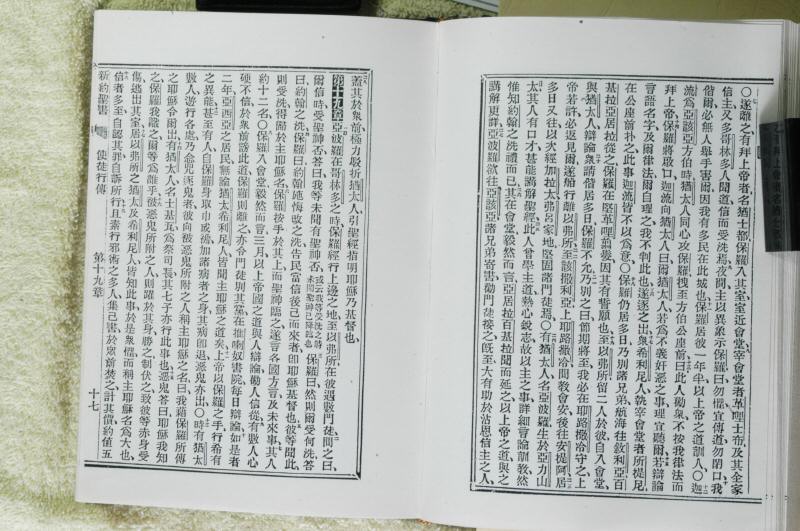 〇遂離之有拜上帝者名猶士都保羅入其室室近會堂宰會堂者革哩士布及其全家
信主又多哥林多人聞道信而受洗焉夜間主以異象示保羅曰勿懼宜傳道勿閉口我
偕爾必無人舉手害爾因我有多民在此城也保羅居彼一年半以上帝之道訓人〇迦
流爲亞該亞方伯時猶太人同心攻保羅拽至方伯公座前曰此人勸衆不按我律法而
拜上帝保羅將啟口迦流向猶太人曰爾猶太人若爲不義奸惡之事理宜聽爾若辯論
言語名字及爾律法爾自理之我不判此也遂逐之出衆希利尼人執宰會堂者所提尼
在公座前扑之此事迦流皆不以爲意〇保羅仍居多日乃別諸兄弟航海往敘利亞百
基拉亞居拉從之保羅在堅革哩翦髮因其有誓願也至以弗所留二人於彼自入會堂
與猶太人辯論衆請偕居多日保羅不允乃別之曰節期將至我必在耶路撒冷守之上
帝若許必返見爾遂船行離以弗所至該撒利亞上耶路撒冷問敎會安後往安提阿居
多日又往以次經加拉太弗呂家地堅固諸門徒焉〇有猶太人名亞波羅生於亞力山
太其人有口才甚能講解聖經此人曾學主道熱心銳志故以主之事詳細言論訓敎然
惟知約翰之洗禮而已其在會堂毅然而言亞居拉百基拉聞而延之以上帝之道與之
講解更詳亞波羅欲往亞該亞諸兄弟寄書勸門徒接之旣至大有助於沾恩信主之人
蓋其於衆前極力駁折猶太人引聖經指明耶穌乃基督也
第十九章亞波羅在哥林多之時保羅經行上邊之地至以弗所在彼遇數門徒問之曰
爾信時受聖神否答曰我等未聞有聖神否保羅曰然則爾受何洗答
曰約翰之洗保羅曰約翰施悔改之洗告民當信後己而來者卽耶穌基督也彼等聞此
則受洗得歸於主耶穌名保羅按手於其上而聖神臨之遂言各國方言及未來事其人
約十二名〇保羅入會堂毅然而言三月以上帝國之道與人辯論勸人信從有數人心
硬不信於衆前謗此道保羅則離之亦令門徒別其堂在推喇奴書院每日辯論如是者
二年亞西亞之居民無論猶太希利尼人皆聞主耶穌之道矣上帝以保羅之手行希有
之異能甚至有人自保羅身取巾或襜加諸病者之身其病卽退惡鬼亦出〇時有猶太
數人遊行各處乃念咒逐鬼者彼向被惡鬼所附之人稱主耶穌之名曰我藉保羅所傳
之耶穌令爾出有猶太人名士基瓦爲祭司長其七子亦行此事也惡鬼答曰耶穌我知
之保羅我識之爾等爲誰乎被惡鬼所附之人則躍於其身勝之制伏之致彼等赤身受
傷逃出其家居以弗所之猶太及希利尼人皆知此事於是衆懼而稱主耶穌名爲大也
信者多至自認其罪自訴所行且素行邪術之多人集己書於眾前焚之計其價約值五
新約聖書 使徒行傳 第十九章 十七